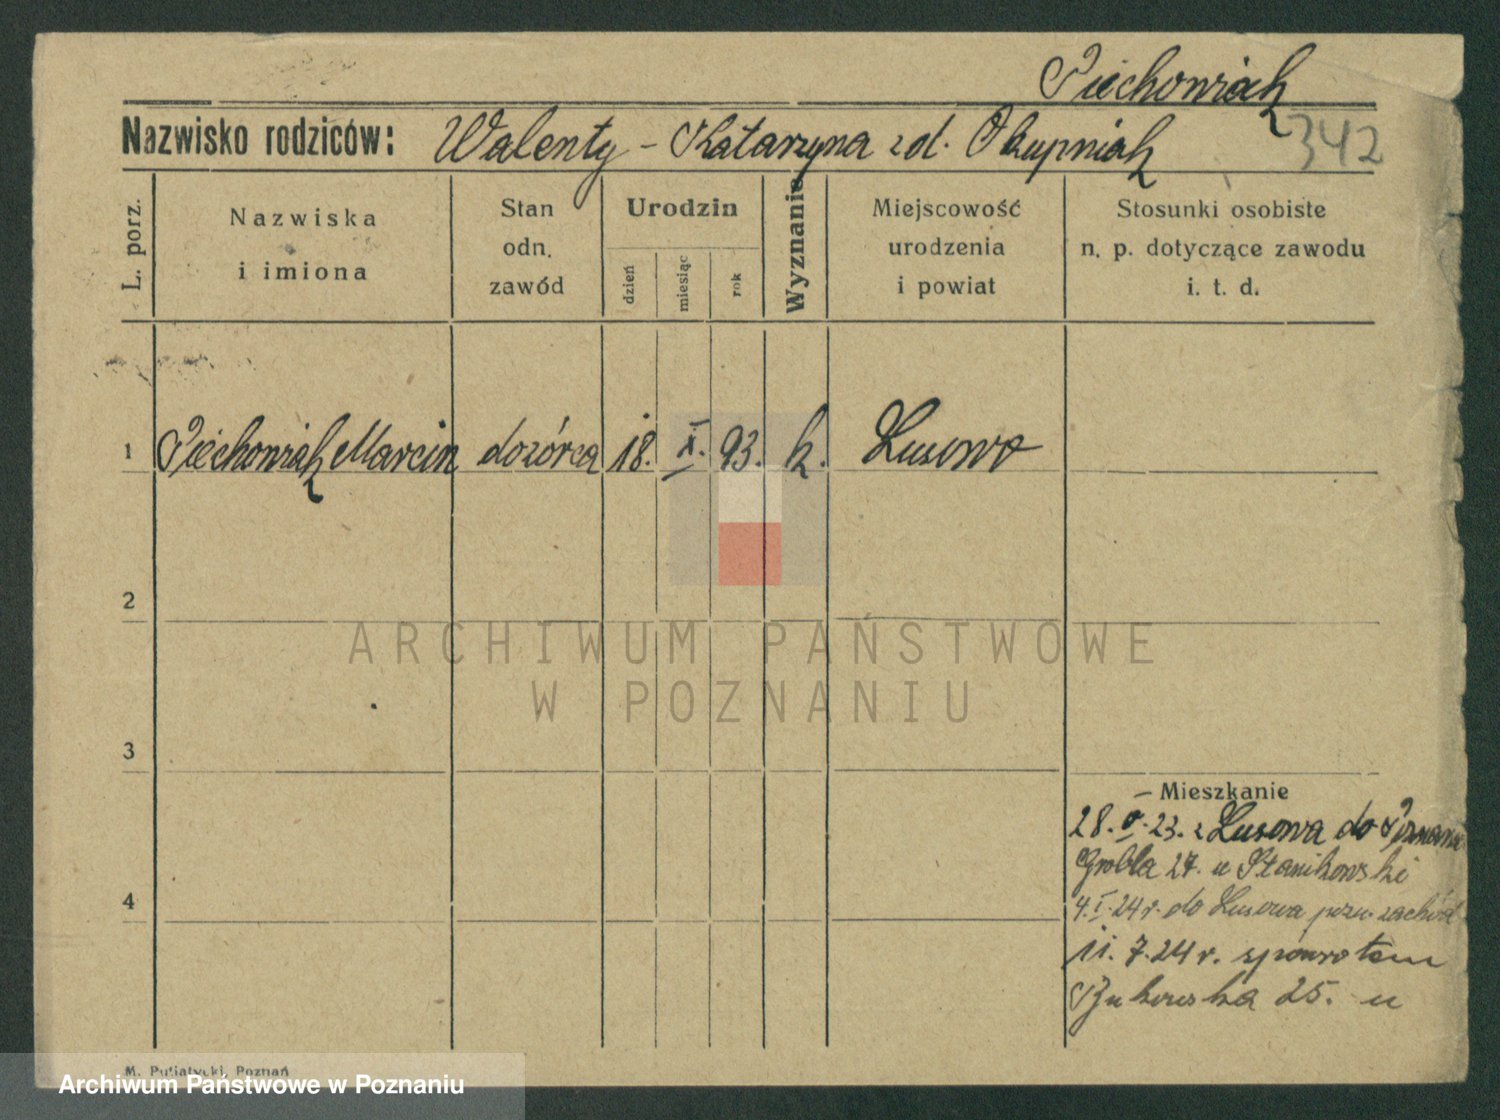 Piechowiak
Nazwisko rodziców: Walenty - Katarzyna zd. Okupniak 342
L. porz.
Nazwiska
i imiona
Stan
odn.
zawód
Urodzin
dzień
miesiąc
rok
Wyznanie
Miejscowość
urodzenia
i powiat
Stosunki osobiste
n. p. dotyczące zawodu
i. t. d.
1 Piechowiak Marcin dozórca 18. X. 93. k. Lusowo
2
ARCHIWUM PAŃSTWOWE
W POZNANIU
3
Mieszkanie
28. V. 23. z Lusowa do Poznania
Grobla 27. u Stanikowski
4. I. 24 r. do Lusowa pozn. zachód
11. 7. 24 r. spowrotem
Bukowska 25. u
4
M. Putiatycki, Poznań
Archiwum Państwowe w Poznaniu